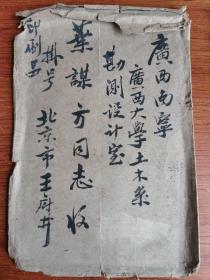 廣西南寧
廣西大學土木系
勘測设计室
葉謀方同志收
掛号
北京市王府井
印刷品